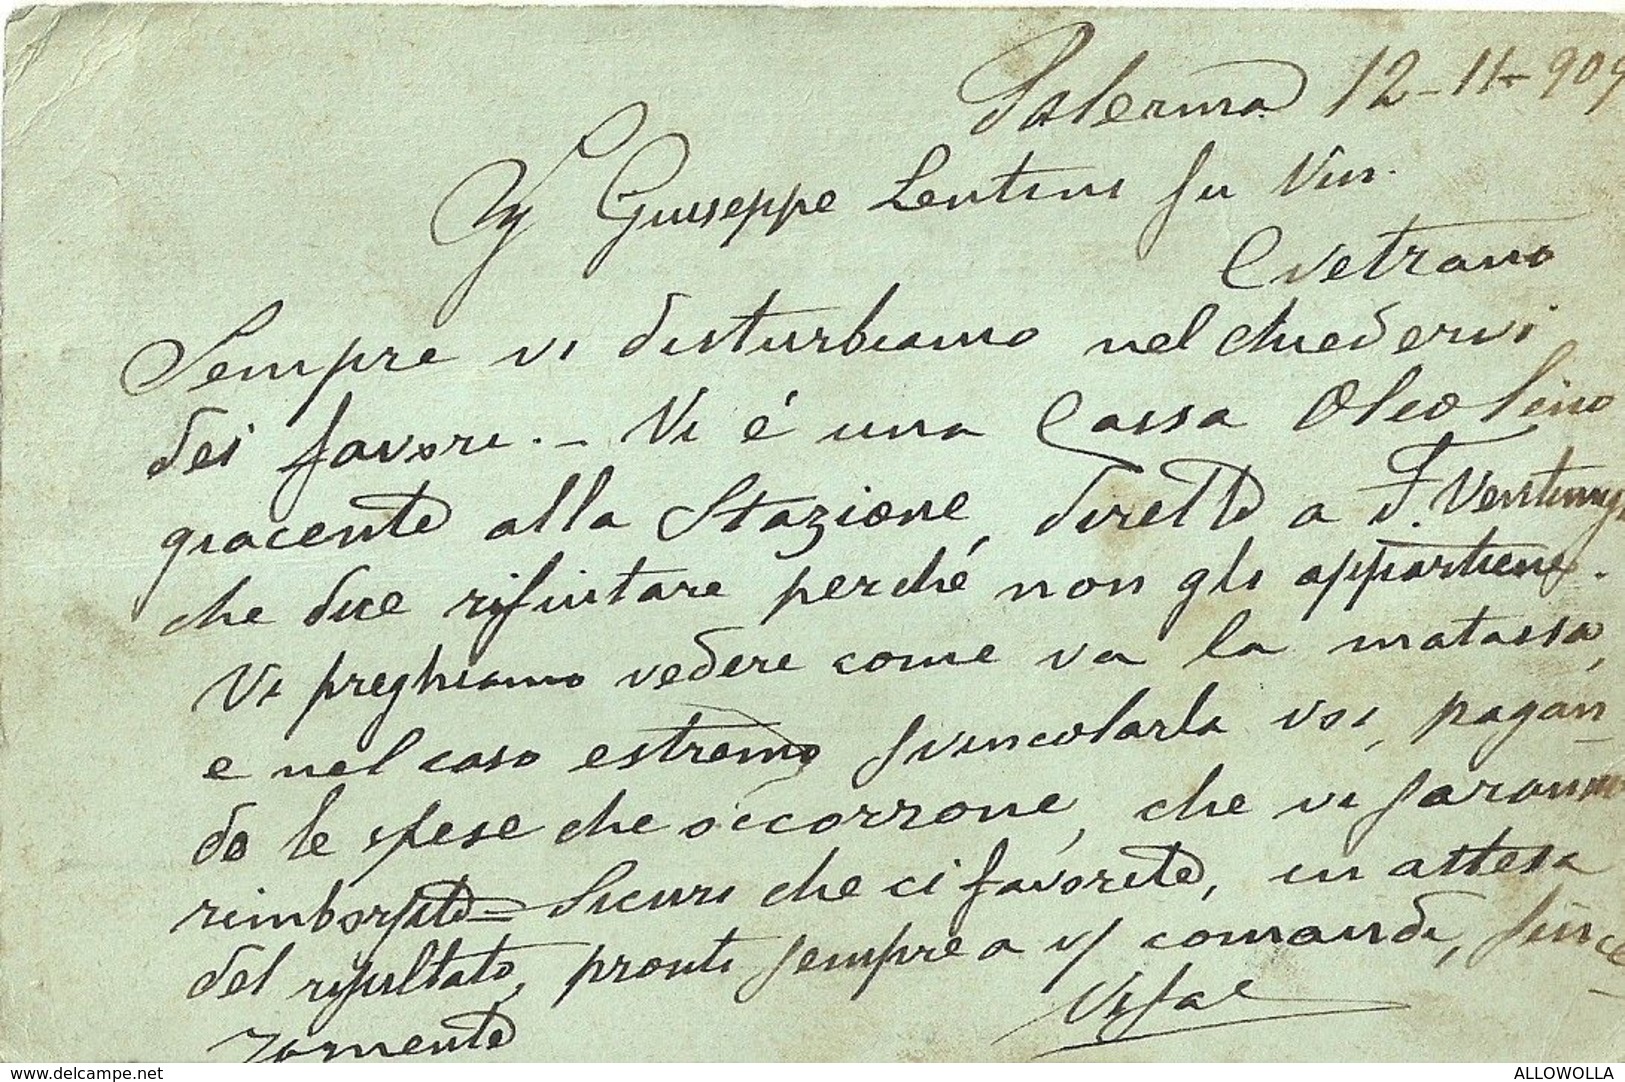 Palermo 12-11-909
Sig Giuseppe Lentini fu Vin.
Cvetrano
Sempre vi disturbiamo nel chiedervi
dei favori. - Vi é una Cassa Oleolino
giacente alla Stazione, diretta a F. Ventimig
che dice rifiutare perché non gli appartiene.
Vi preghiamo vedere come va la matassa,
e nel caso estremo svincolarla voi, pagan-
do le spese che occorrone, che vi saranno
rimborsate = Sicuri che ci favorite, in attesa
del risultato, pronti sempre a V/ comandi, since-
ramente
delcampe.net
ALLOWOLLA